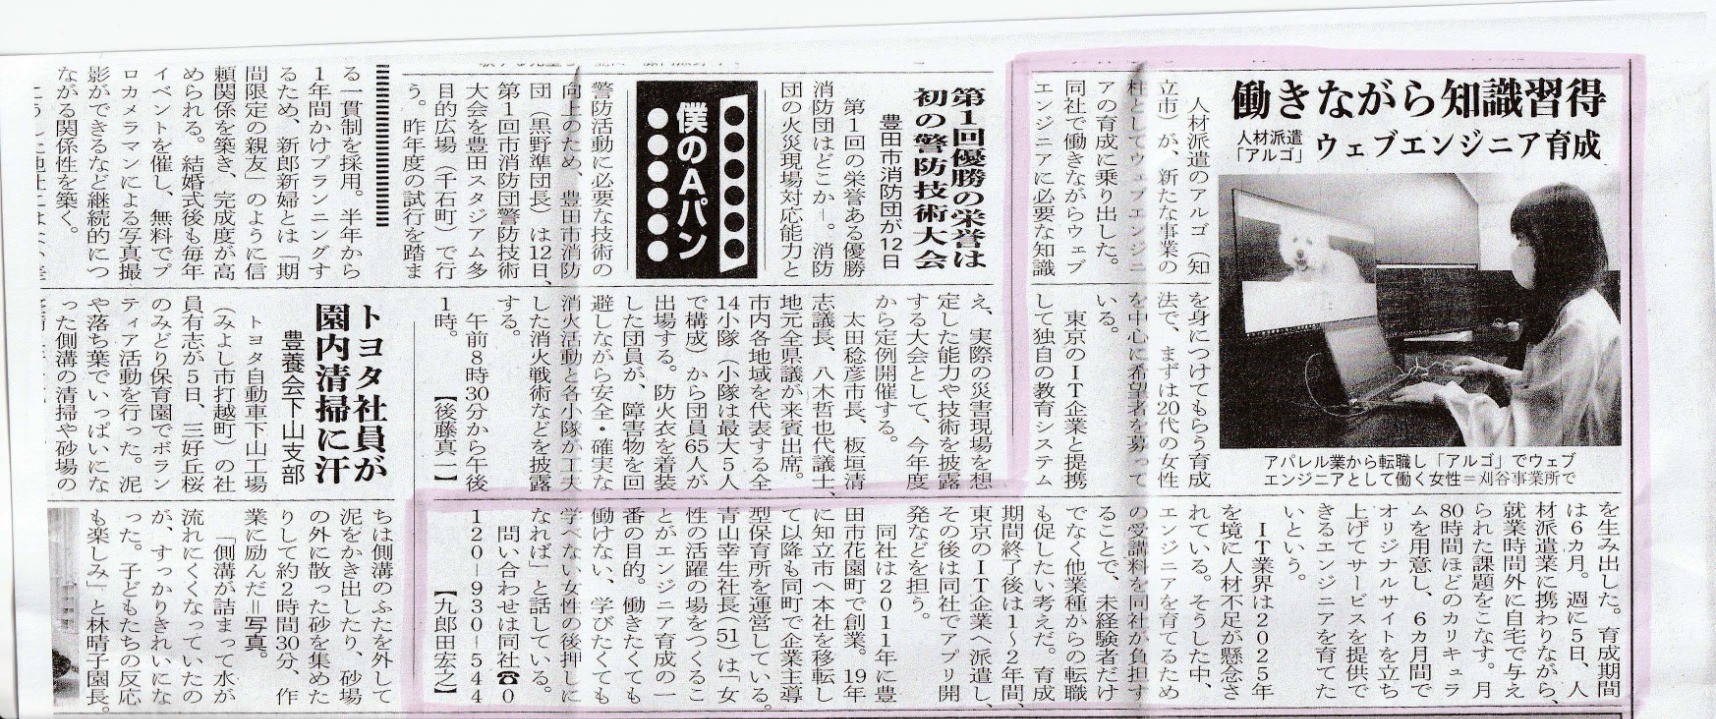 働きながら知識習得
人材派遣
「アルゴ」
ウェブエンジニア育成
人材派遣のアルゴ（知
立市）が、新たな事業の
柱としてウェブエンジニ
アの育成に乗り出した。
同社で働きながらウェブ
エンジニアに必要な知識
を身につけてもらう育成
法で、まずは20代の女性
を中心に希望者を募って
いる。
東京のIT企業と提携
して独自の教育システム
アパレル業から転職し「アルゴ」でウェブ
エンジニアとして働く女性＝刈谷事業所で
を生み出した。育成期間
は6カ月。週に5日、人
材派遣業に携わりながら、
就業時間外に自宅で与え
られた課題をこなす。月
80時間ほどのカリキュラ
ムを用意し、6カ月間で
オリジナルサイトを立ち
上げてサービスを提供で
きるエンジニアを育てた
いという。
IT業界は2025年
を境に人材不足が懸念さ
れている。そうした中、
エンジニアを育てるため
の受講料を同社が負担す
ることで、未経験者だけ
でなく他業種からの転職
も促したい考えだ。育成
期間終了後は1〜2年間、
東京のIT企業へ派遣し、
その後は同社でアプリ開
発などを担う。
同社は2011年に豊
田市花園町で創業。19年
に知立市へ本社を移転し
て以降も同町で企業主導
型保育所を運営している。
青山幸生社長（51）は「女
性の活躍の場をつくるこ
とがエンジニア育成の一
番の目的。働きたくても
働けない、学びたくても
学べない女性の後押しに
なれば」と話している。
問い合わせは同社☎0
120-930-544
【九郎田宏之】
第1回優勝の栄誉は
初の警防技術大会
豊田市消防団が12日
第1回の栄誉ある優勝
消防団はどこか―。消防
団の火災現場対応能力と
僕のAパン
警防活動に必要な技術の
向上のため、豊田市消防
団（黒野準団長）は12日、
第1回市消防団警防技術
大会を豊田スタジアム多
目的広場（千石町）で行
う。昨年度の試行を踏ま
え、実際の災害現場を想
定した能力や技術を披露
する大会として、今年度
から定例開催する。
太田稔彦市長、板垣清
志議長、八木哲也代議士、
地元全県議が来賓出席。
市内各地域を代表する全
14小隊（小隊は最大5人
で構成）から団員65人が
出場する。防火衣を着装
した団員が、障害物を回
避しながら安全・確実な
消火活動と各小隊が工夫
した消火戦術などを披露
する。
午前8時30分から午後
1時。
【後藤真一】
る一貫制を採用。半年から
1年間かけプランニングす
るため、新郎新婦とは「期
間限定の親友」のように信
頼関係を築き、完成度が高
められる。結婚式後も毎年
イベントを催し、無料でプ
ロカメラマンによる写真撮
影ができるなど継続的につ
ながる関係性を築く。
トヨタ社員が
園内清掃に汗
豊養会下山支部
トヨタ自動車下山工場
（みよし市打越町）の社
員有志が5日、三好丘桜
のみどり保育園でボラン
ティア活動を行った。泥
や落ち葉でいっぱいにな
った側溝の清掃や砂場の
ちは側溝のふたを外して
泥をかき出したり、砂場
の外に散った砂を集めた
りして約2時間30分、作
業に励んだ＝写真。
「側溝が詰まって水が
流れにくくなっていたの
が、すっかりきれいにな
った。子どもたちの反応
も楽しみ」と林晴子園長。